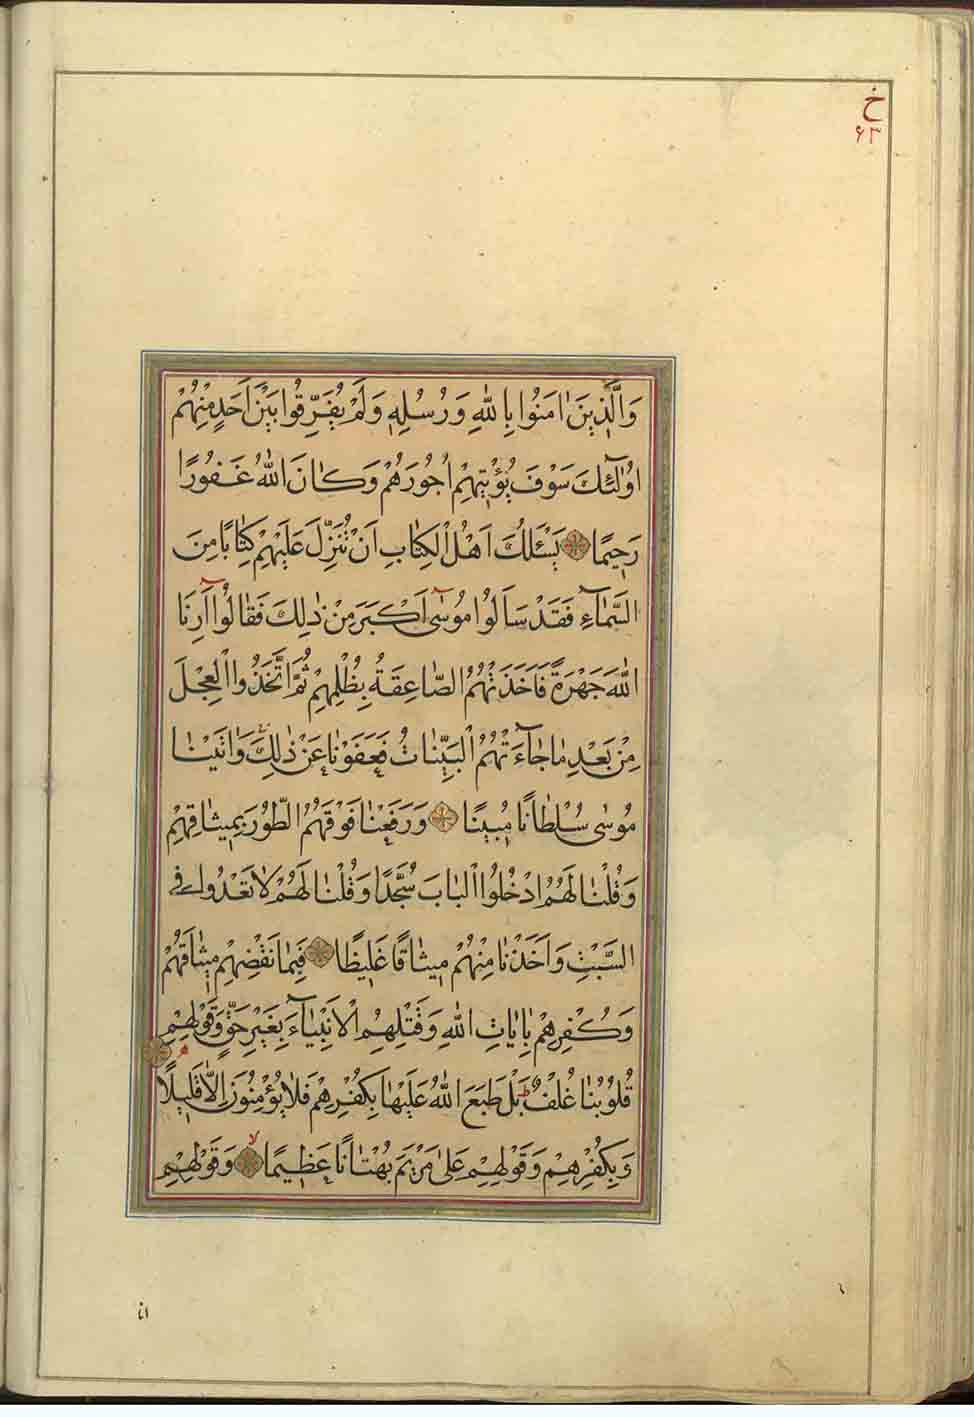 خ
٦٣
وَالَّذِينَ اٰمَنُوا بِاللّٰهِ وَرُسُلِهِ وَلَمْ يُفَرِّقُوا بَيْنَ اَحَدٍ مِنْهُمْ
اُولٰٓئِكَ سَوْفَ يُؤْتِيهِمْ اُجُورَهُمْ وَكَانَ اللّٰهُ غَفُورًا
رَحِيمًا يَسْئَلُكَ اَهْلُ الْكِتَابِ اَنْ تُنَزِّلَ عَلَيْهِمْ كِتَابًا مِنَ
السَّمَآءِ فَقَدْ سَاَلُوا مُوسٰٓى اَكْبَرَ مِنْ ذٰلِكَ فَقَالُوٓا اَرِنَا
اللّٰهَ جَهْرَةً فَاَخَذَتْهُمُ الصَّاعِقَةُ بِظُلْمِهِمْ ثُمَّ اتَّخَذُوا الْعِجْلَ
مِنْ بَعْدِ مَا جَآءَتْهُمُ الْبَيِّنَاتُ فَعَفَوْنَا عَنْ ذٰلِكَ وَاٰتَيْنَا
مُوسٰى سُلْطَانًا مُبِينًا وَرَفَعْنَا فَوْقَهُمُ الطُّورَ بِمِيثَاقِهِمْ
وَقُلْنَا لَهُمُ ادْخُلُوا الْبَابَ سُجَّدًا وَقُلْنَا لَهُمْ لَا تَعْدُوا فِي
السَّبْتِ وَاَخَذْنَا مِنْهُمْ مِيثَاقًا غَلِيظًا فَبِمَا نَقْضِهِمْ مِيثَاقَهُمْ
وَكُفْرِهِمْ بِاٰيَاتِ اللّٰهِ وَقَتْلِهِمُ الْاَنْبِيَآءَ بِغَيْرِ حَقٍّ وَقَوْلِهِمْ
قُلُوبُنَا غُلْفٌ بَلْ طَبَعَ اللّٰهُ عَلَيْهَا بِكُفْرِهِمْ فَلَا يُؤْمِنُونَ اِلَّا قَلِيلًا
وَبِكُفْرِهِمْ وَقَوْلِهِمْ عَلٰى مَرْيَمَ بُهْتَانًا عَظِيمًا وَقَوْلِهِمْ
انا